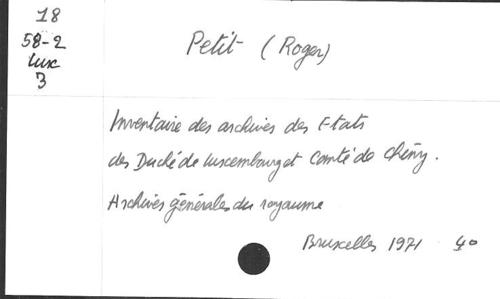 18
58-2
lux
3
Petit (Roger)
Inventaire des archives des Etats
des Duché de Luxembourg et Comté de Chiny.
Archives générales du royaume
Bruxelles 1971 40